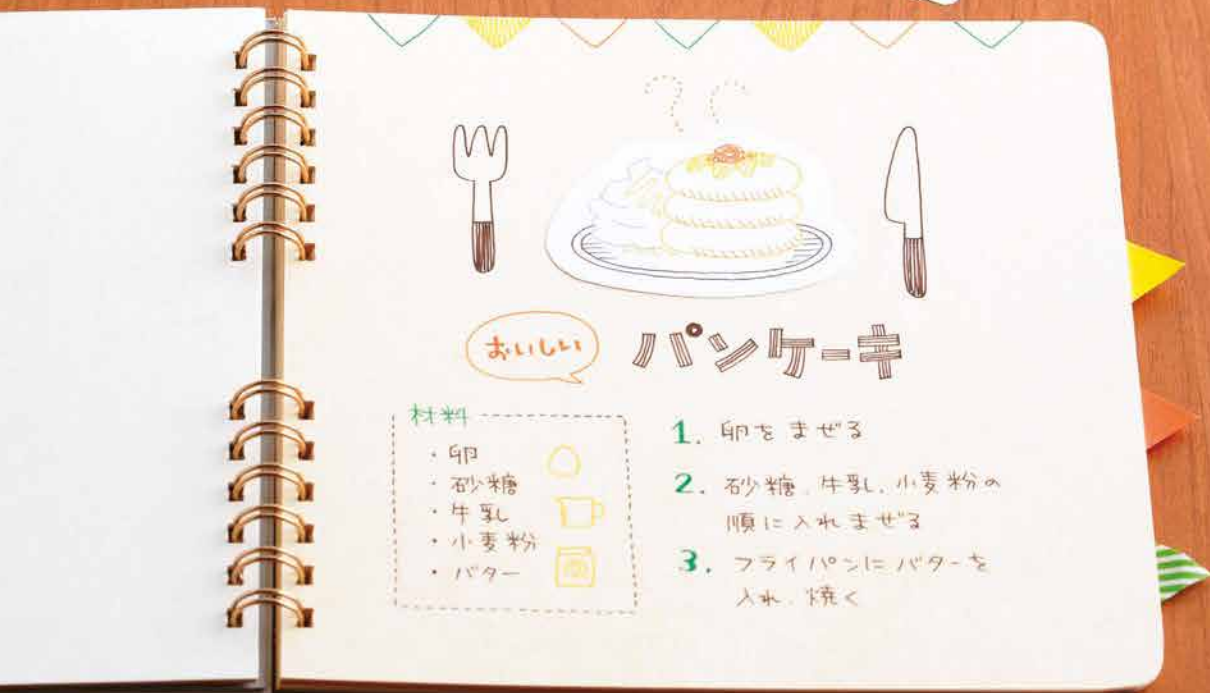 おいしい
パンケーキ
材料
・卵
・砂糖
・牛乳
・小麦粉
・バター
1. 卵をまぜる
2. 砂糖、牛乳、小麦粉の
順に入れまぜる
3. フライパンにバターを
入れ、焼く